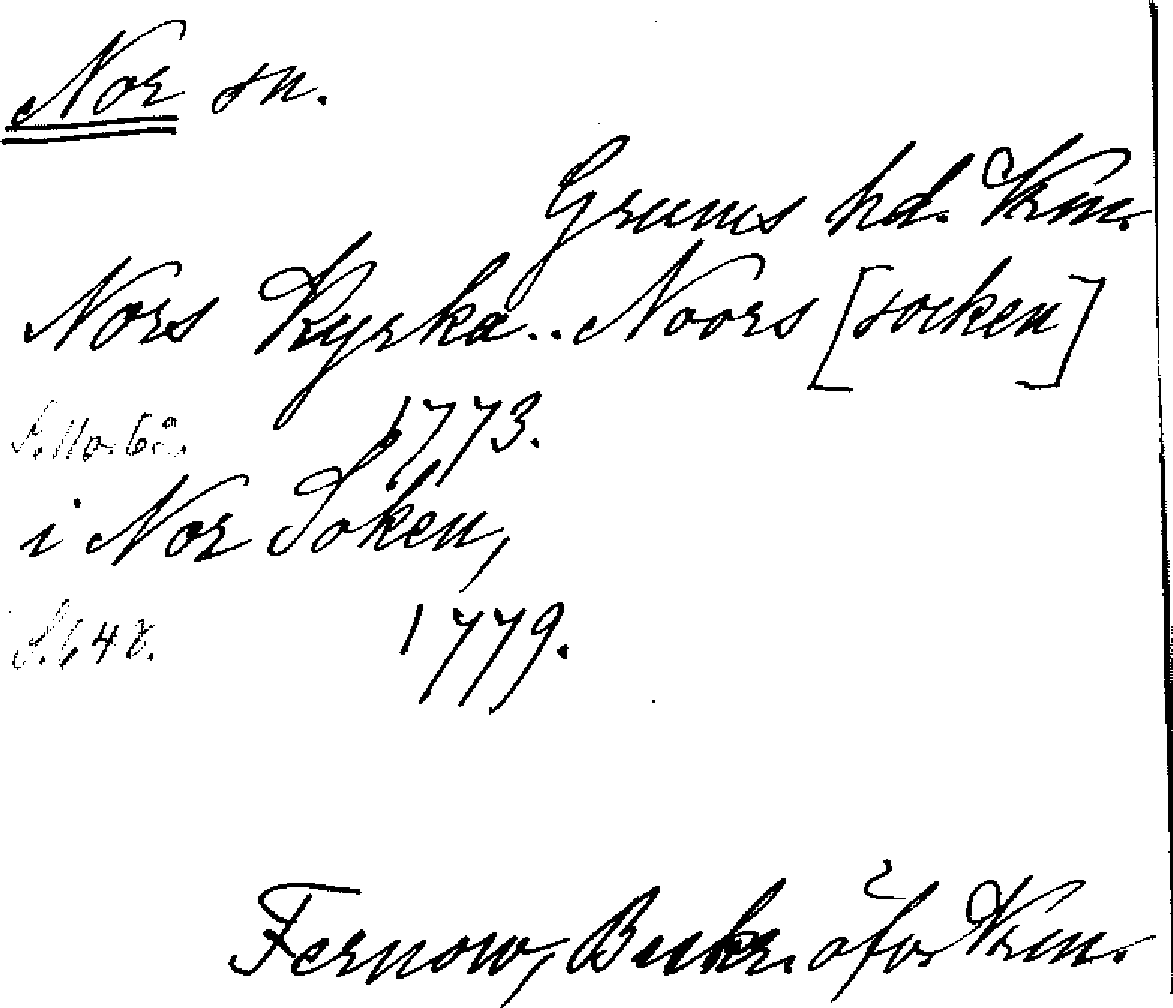 Nor sn.
Grums hd. Vrm.
Nors Kyrka.. Noors [socken]
1773.
i Nor Soken,
S. 648. 1779.
Fernow, Beskr. öfver Vrm.